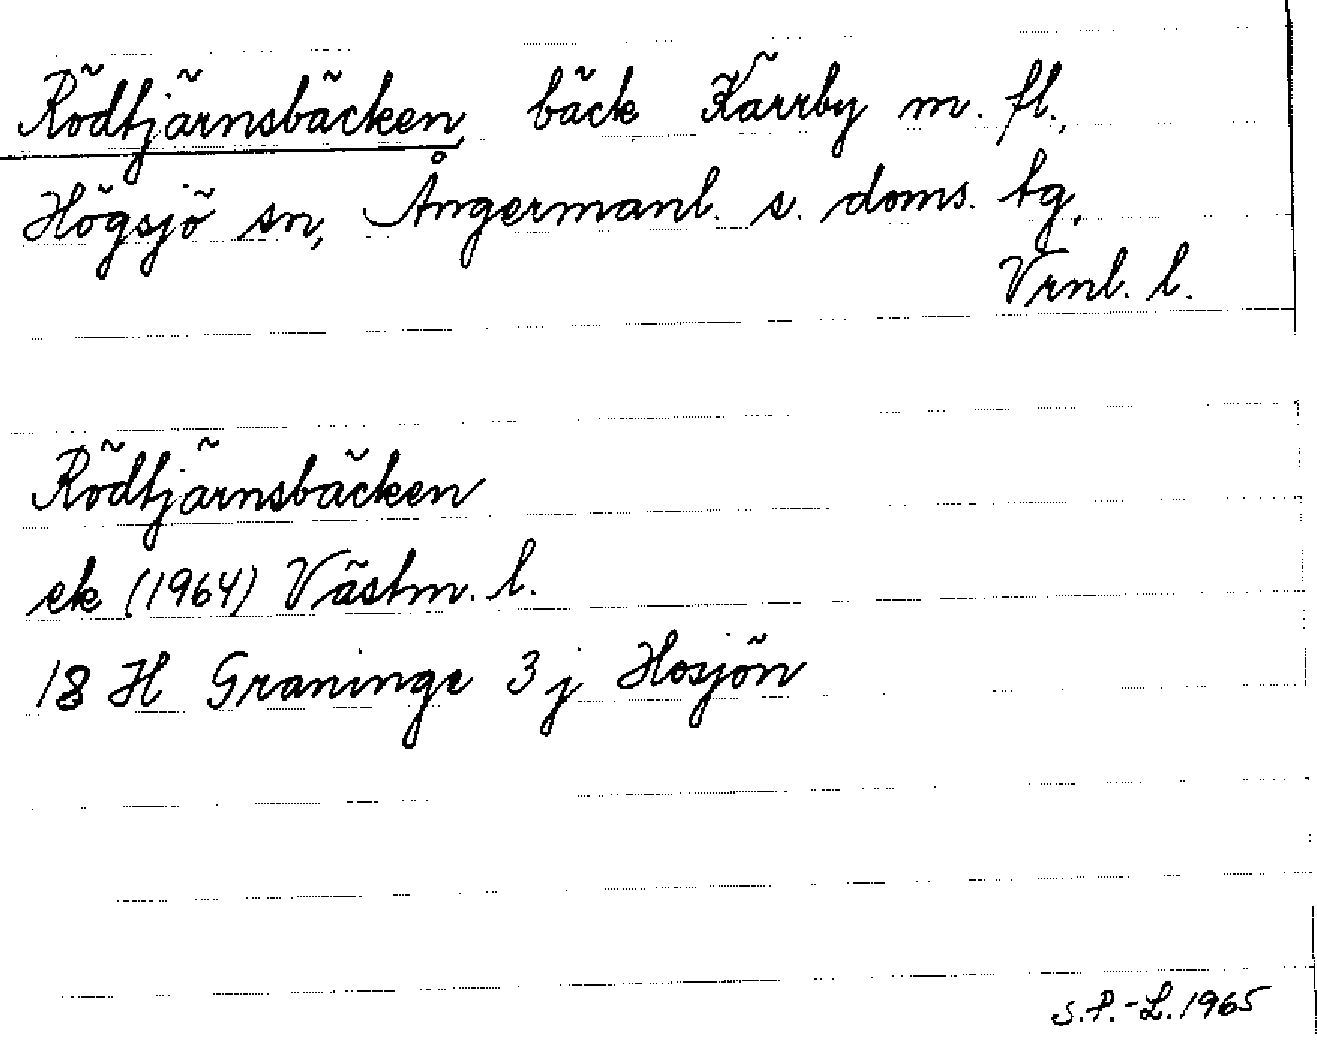 Rödtjärnsbäcken bäck Kärrby m. fl.,
Högsjö sn, Ångermanl. s. doms. tg.
Vrnl. l.
Rödtjärnsbäcken
ek (1964) Västrn. l.
18 H Graninge 3 j Hosjön
S.P.-L. 1965